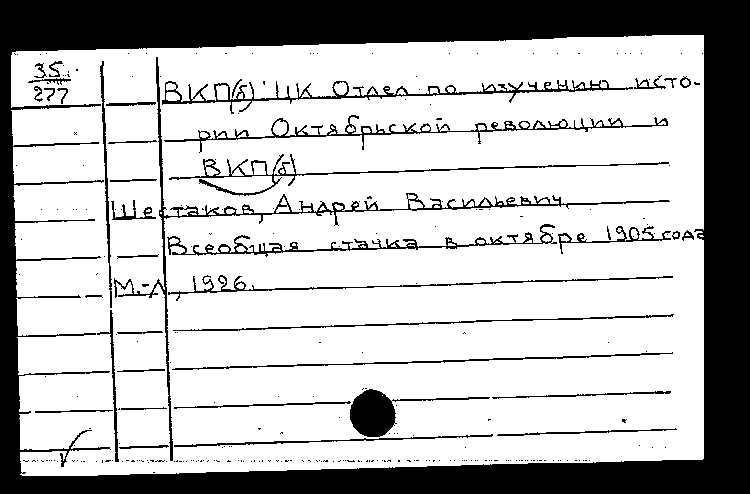 35
277
ВКП(б). ЦК Отдел по изучению исто-
рии Октябрьской революции и
ВКП(б)
Шестаков, Андрей Васильевич.
Всеобщая стачка в октябре 1905 года
М.-Л, 1926.